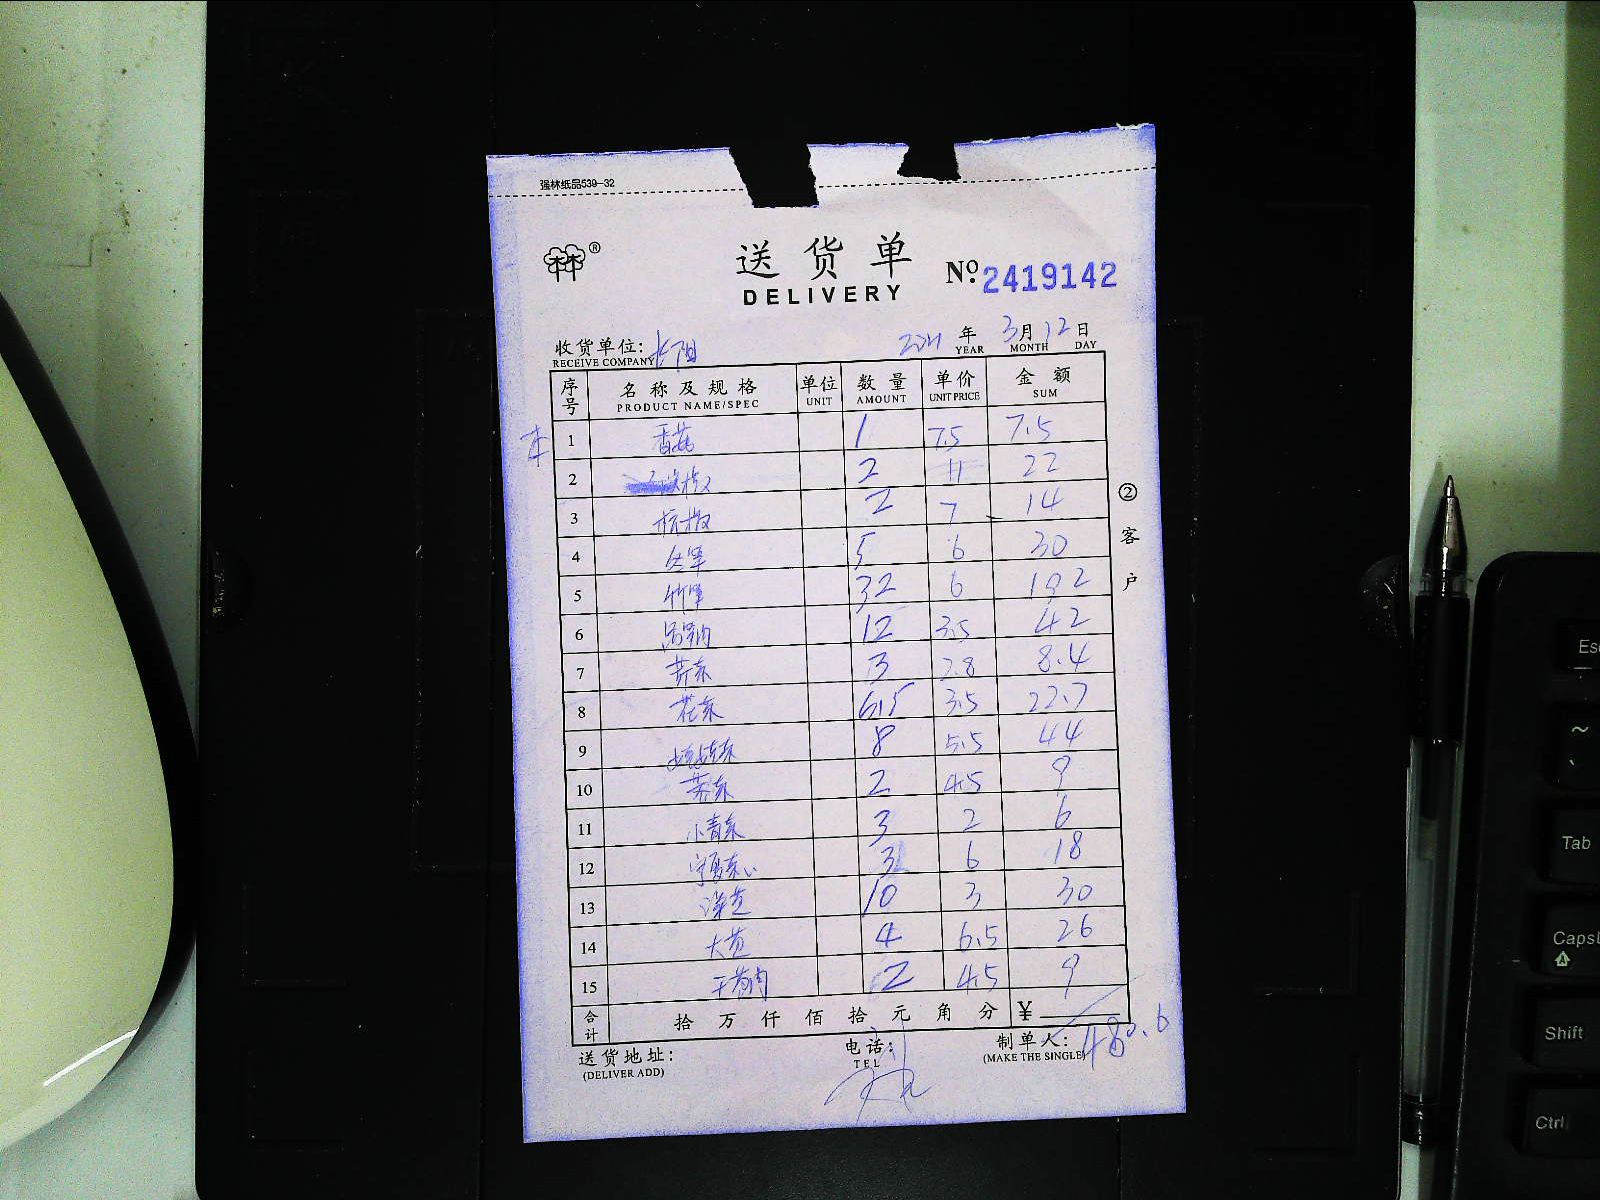 强林纸品539-32
®
送货单
DELIVERY
No. 2419142
收货单位:
RECEIVE COMPANY
2021 年 3月 12日
YEAR MONTH DAY
序号 名称及规格 单位 数量 单价 金额
PRODUCT NAME/SPEC UNIT AMOUNT UNIT PRICE SUM
1 香菇 1 7.5 7.5
2 2 11 22
3 2 7 14
4 5 6 30
5 竹笋 32 6 192
6 12 3.5 42
7 3 2.8 8.4
8 花菜 6.5 3.5 22.7
9 8 5.5 44
10 2 4.5 9
11 小青菜 3 2 6
12 3 6 18
13 洋芋 10 3 30
14 大 4 6.5 26
15 2 4.5 9
合计 拾万仟佰拾元角分 ¥
480.6
送货地址: 电话: 制单人:
(DELIVER ADD) TEL (MAKE THE SINGLE)
②客户
Esc
~
Tab
Caps
Shift
Ctrl